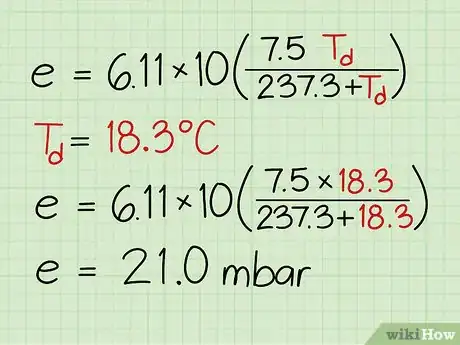 e = 6.11×10(7.5 Td / 237.3+Td)
Td = 18.3°C
e = 6.11×10(7.5×18.3 / 237.3+18.3)
e = 21.0 mbar
wikiHow